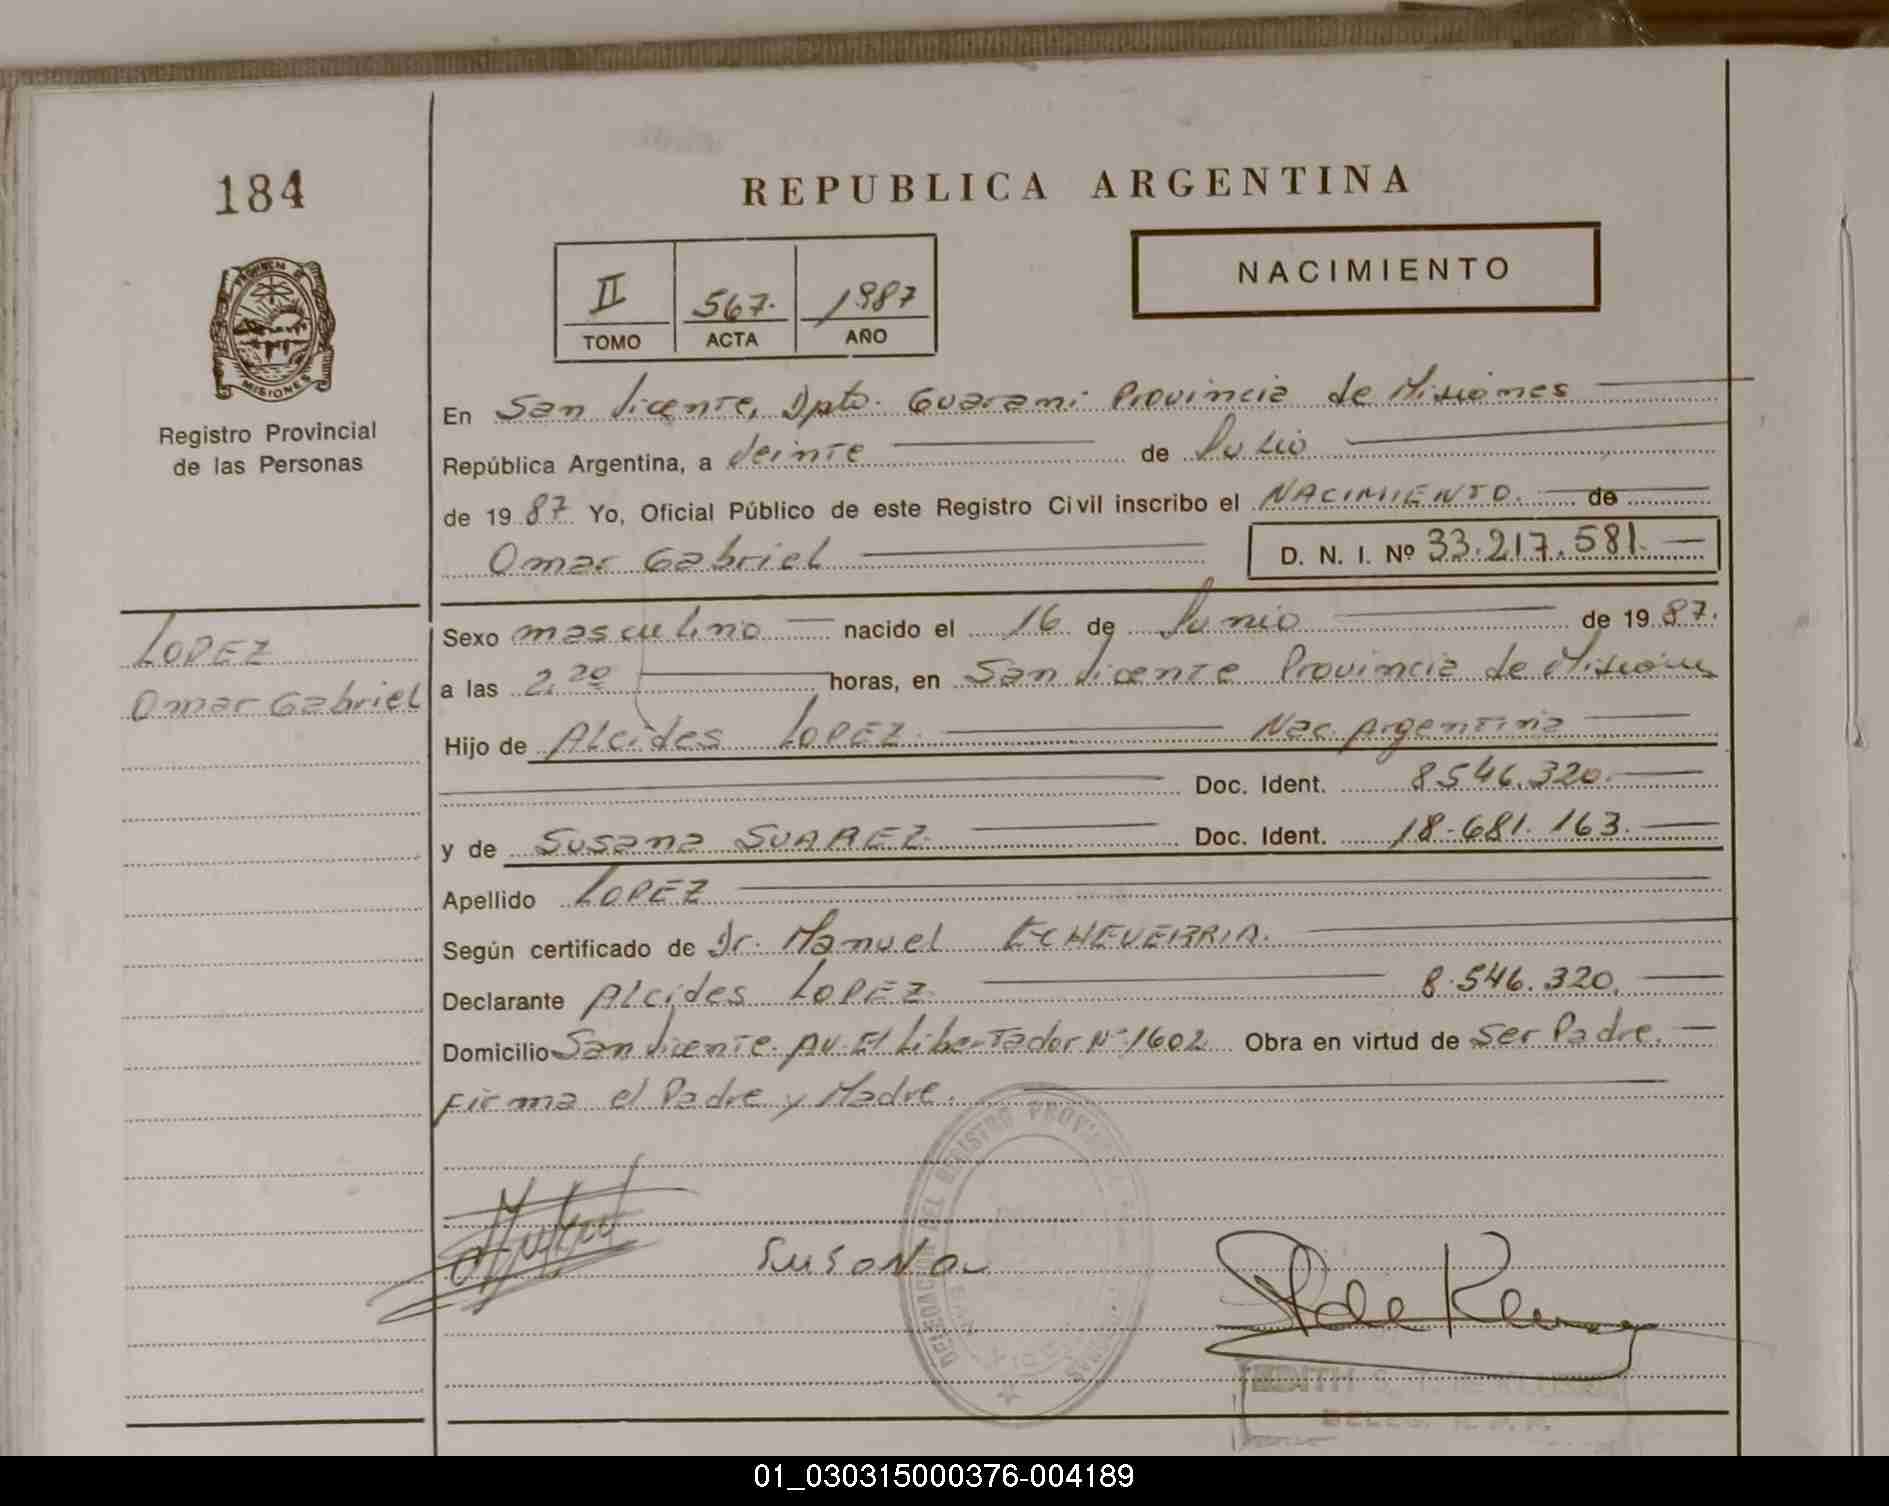 184
REPUBLICA ARGENTINA
PROVINCIA DE
MISIONES
Registro Provincial
de las Personas
II 567. 1987
TOMO ACTA AÑO
NACIMIENTO
En San Vicente, Dpto. Guarani Provincia de Misiones
República Argentina, a Veinte de Julio
de 1987 Yo, Oficial Público de este Registro Civil inscribo el NACIMIENTO. de
Omar Gabriel D. N. I. Nº 33.217.581.
LOPEZ
Omar Gabriel
Sexo masculino nacido el 16 de Junio de 1987.
a las 2,20 horas, en San Vicente Provincia de Misiones
Hijo de Alcides LOPEZ. Nac. Argentina
Doc. Ident. 8.546.320.
y de Susana SUAREZ. Doc. Ident. 18.681.163.
Apellido LOPEZ
Según certificado de Dr. Manuel ECHEVERRIA.
Declarante Alcides LOPEZ. 8.546.320.
Domicilio San Vicente. Av. El Libertador Nº 1602 Obra en virtud de Ser Padre.
Firma el Padre y Madre.
DELEGACION DEL REGISTRO PROVINCIAL
Susana
01_030315000376-004189